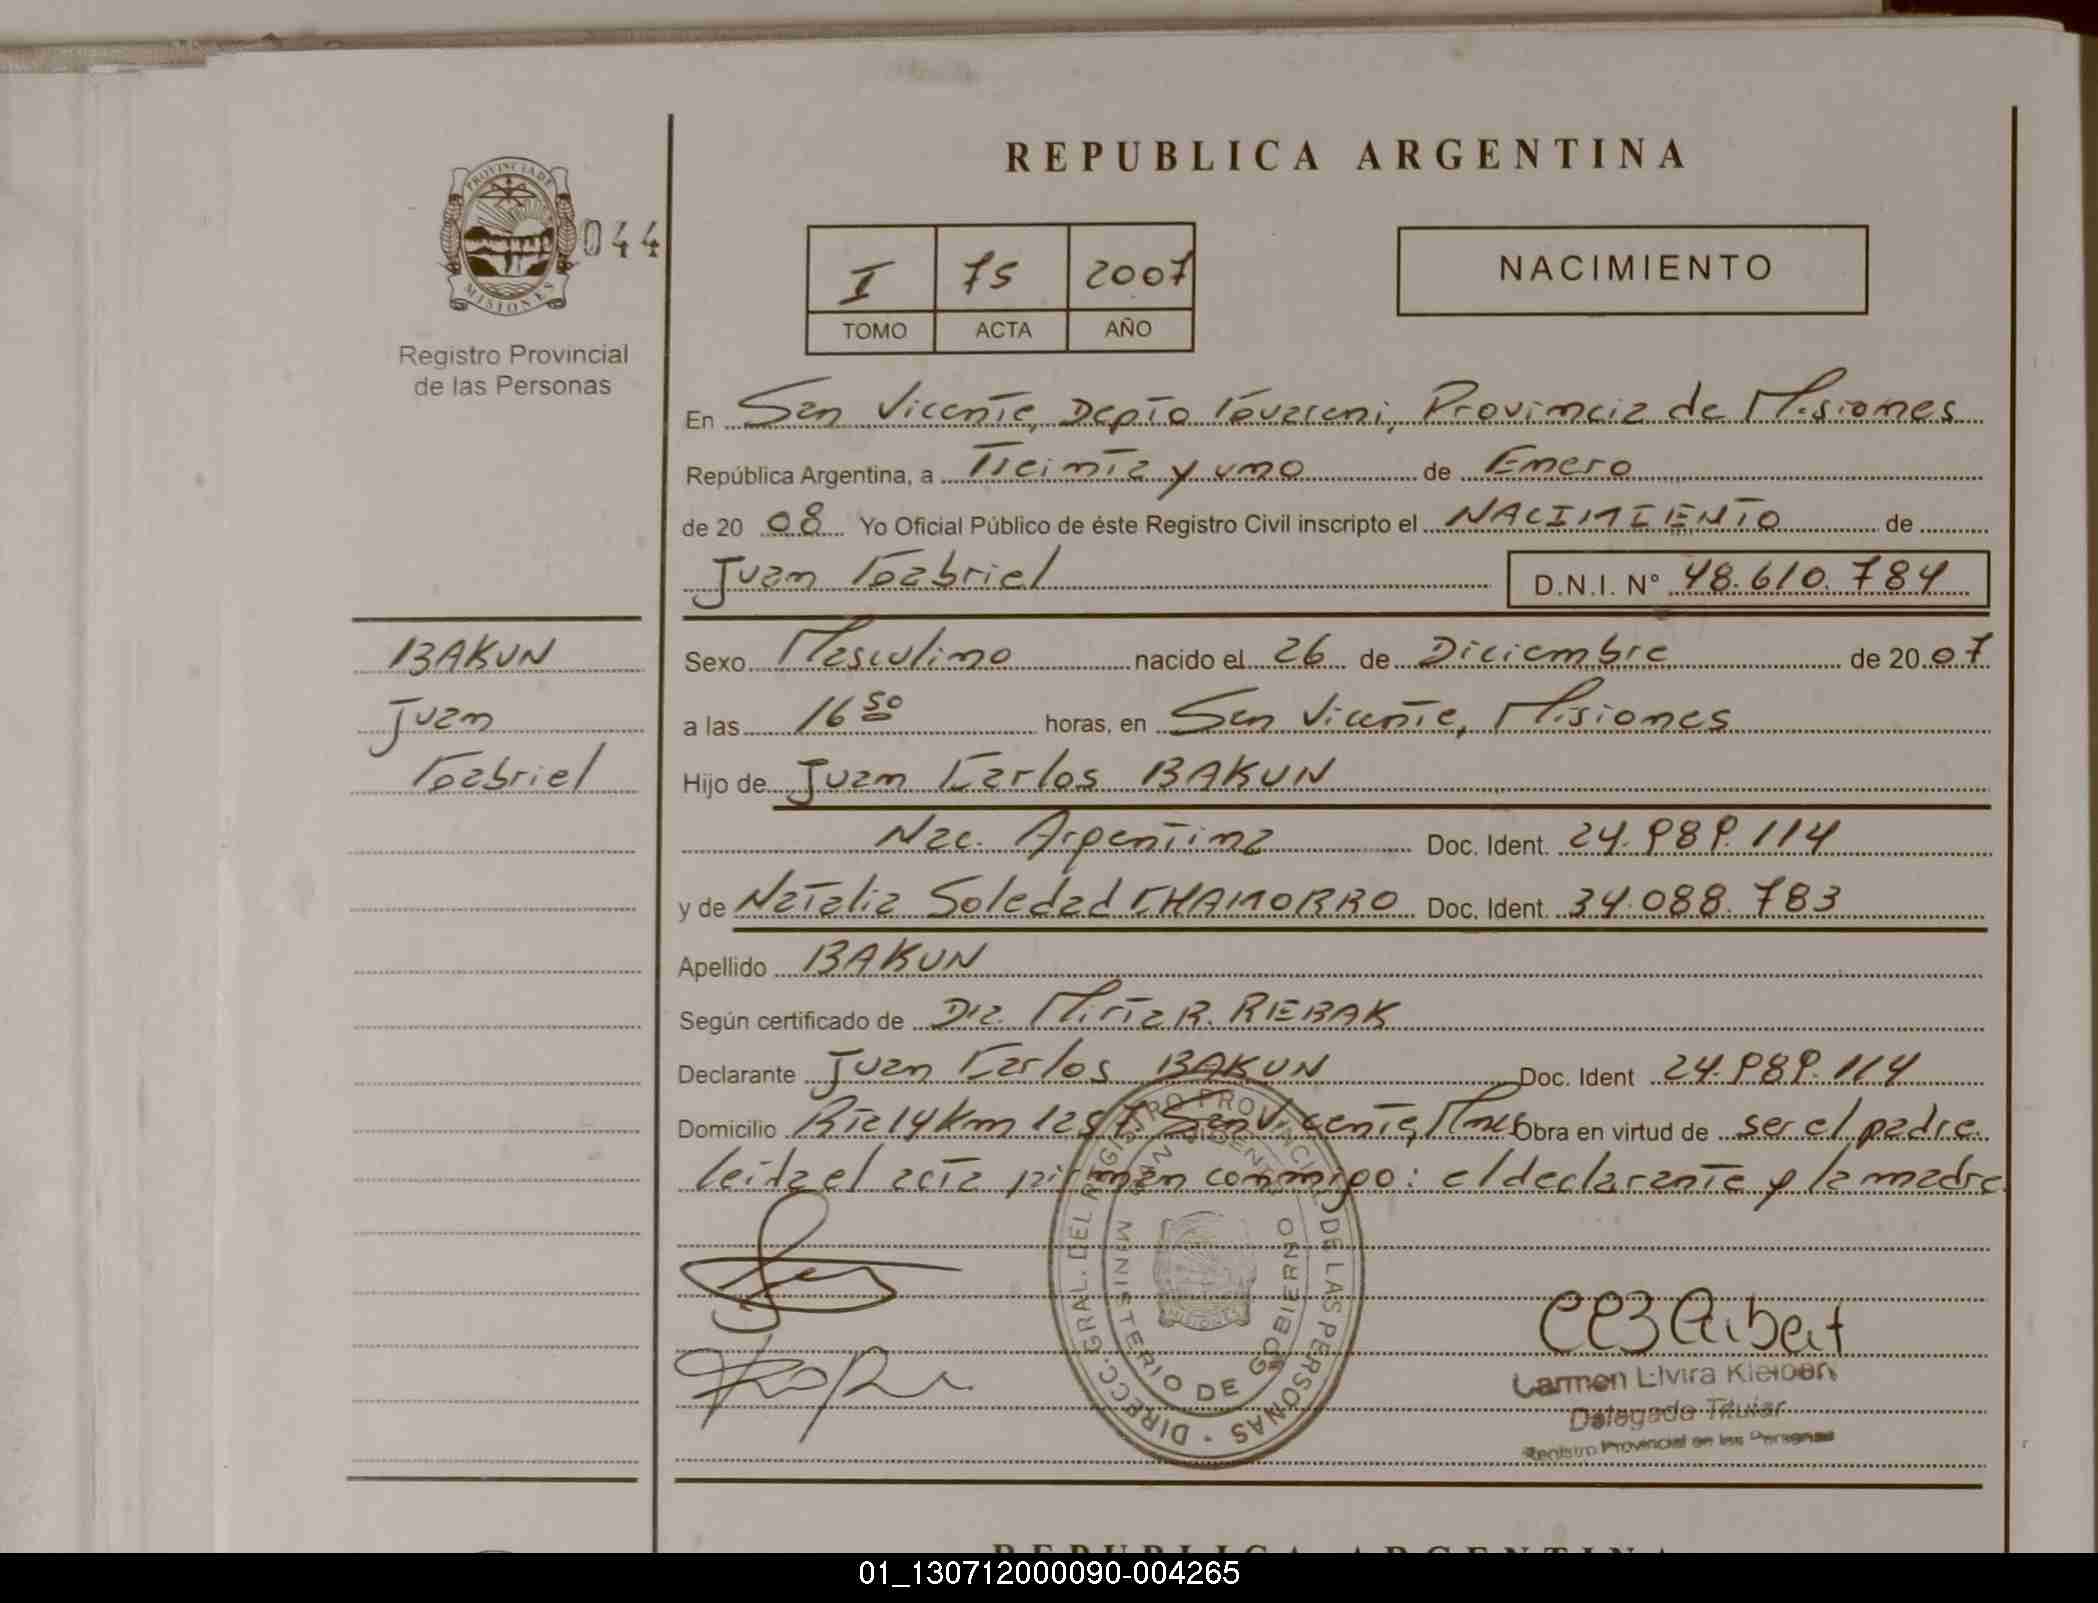 REPUBLICA ARGENTINA
PROVINCIA DE
MISIONES
044
Registro Provincial
de las Personas
I 75 2007
TOMO ACTA AÑO
NACIMIENTO
En San Vicente, Depto Guarani, Provincia de Misiones
República Argentina, a Treinta y uno de Enero
de 20 08 Yo Oficial Público de éste Registro Civil inscripto el NACIMIENTO de
Juan Gabriel D.N.I. Nº 48.610.784
BAKUN
Juan
Gabriel
Sexo Masculino nacido el 26 de Diciembre de 20 07
a las 16 50 horas, en San Vicente, Misiones
Hijo de Juan Carlos BAKUN
Nac. Argentina Doc. Ident. 24.989.114
y de Natalia Soledad CHAMORRO Doc. Ident. 34.088.783
Apellido BAKUN
Según certificado de Dra. Mirta R. REBAK
Declarante Juan Carlos BAKUN Doc. Ident 24.989.114
Domicilio Rta 14 Km 1257 San Vicente, Mnes Obra en virtud de ser el padre.
leida el acta firman conmigo: el declarante y la madre
DIRECC. GRAL. DEL REGISTRO PROVINCIAL DE LAS PERSONAS
SAN VICENTE
MINISTERIO DE GOBIERNO
MISIONES
Carmen Elvira
Delegada Titular
Registro Provincial de las Personas
REPUBLICA ARGENTINA
01_130712000090-004265